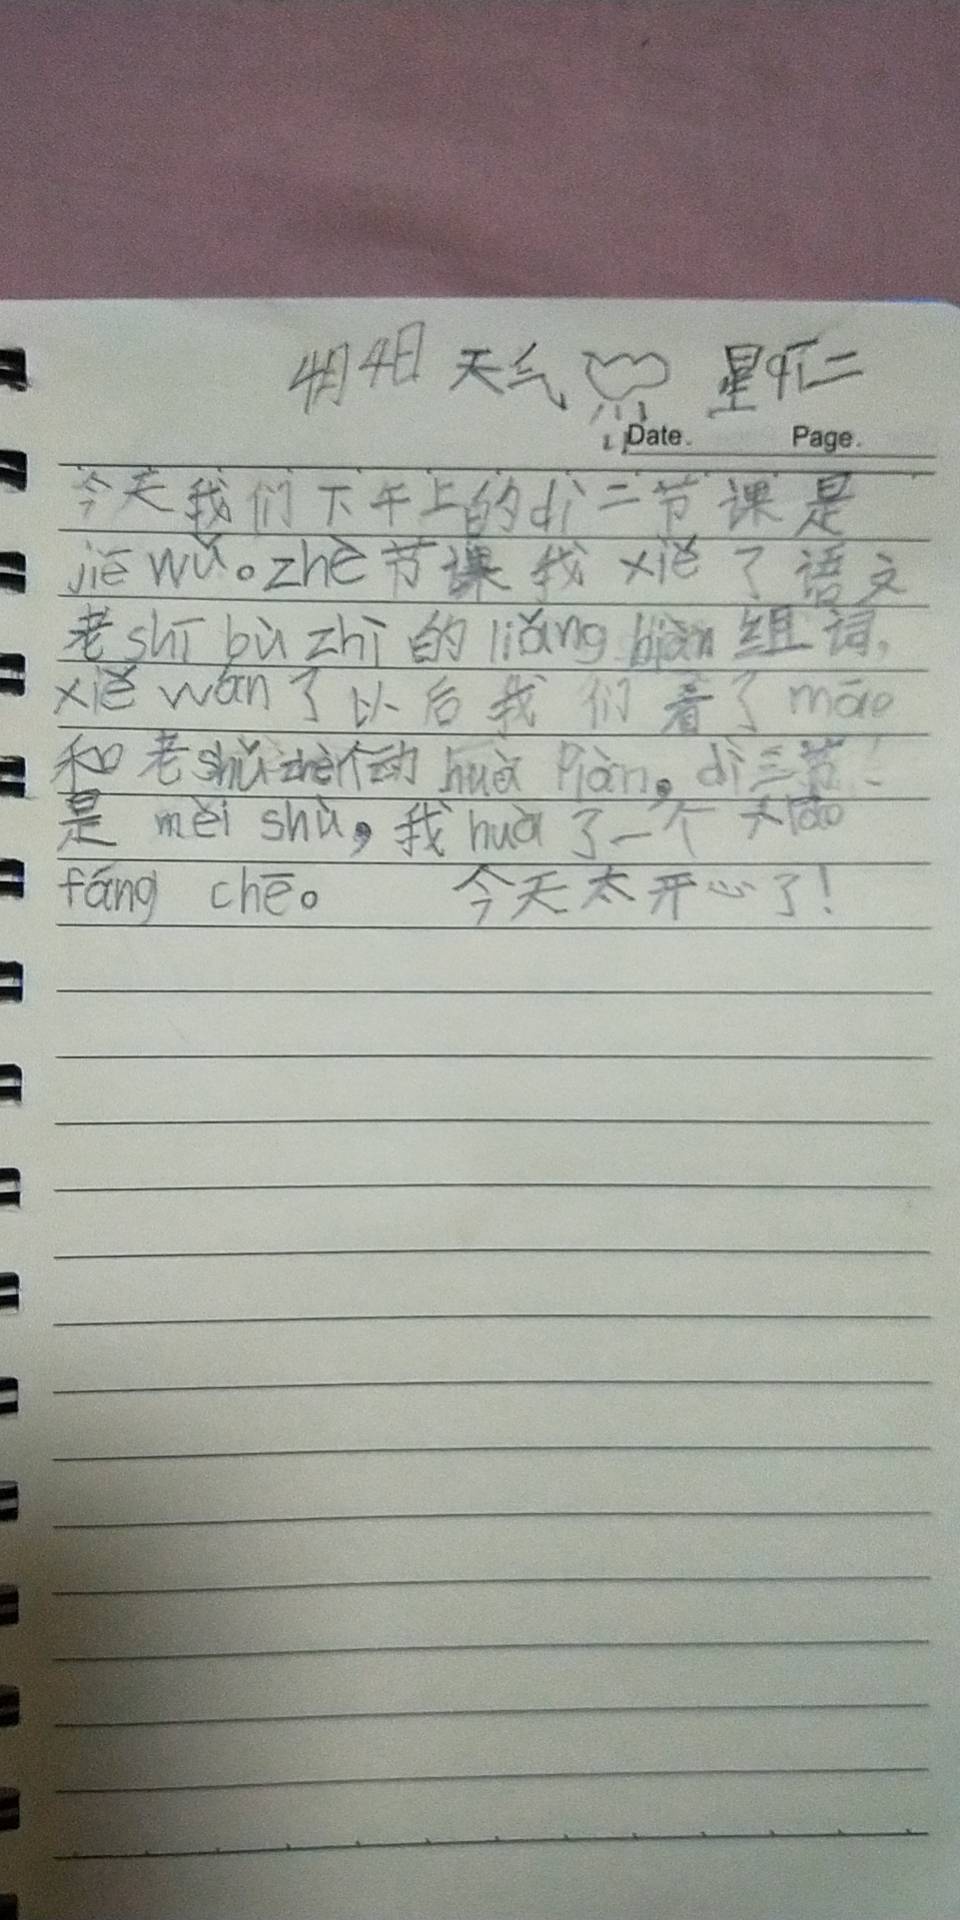 4月4日 天气 星忊二
Date. Page.
今天我们下午上的dì二节课是
jiē wǔ。zhè节课我 xiě了语文
老shī bù zhì的liǎng biàn组词,
xiě wán了以后我们看了māo
和老shǔ zhè个动huà Piàn。dì三节
是 měi shù,我huà了一个大
fáng chē。 今天太开心了!